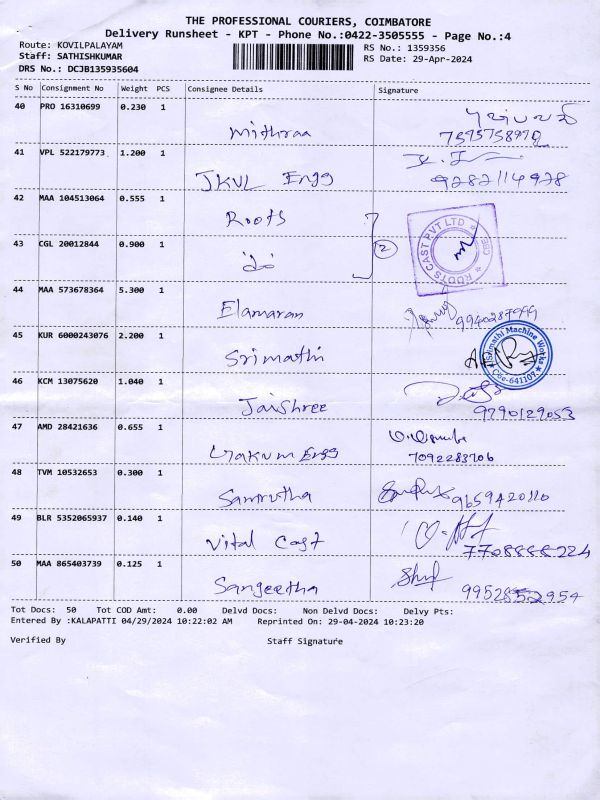 THE PROFESSIONAL COURIERS, COIMBATORE
Delivery Runsheet - KPT - Phone No.:0422-3505555 - Page No.:4
Route: KOVILPALAYAM
RS No.: 1359356
Staff: SATHISHKUMAR
RS Date: 29-Apr-2024
DRS No.: DCJB135935604
S No Consignment No Weight PCS Consignee Details Signature
40 PRO 16310699 0.230 1 Mithraa
41 VPL 522179773 1.200 1 JKVL Engg 9282114928
42 MAA 104513064 0.555 1 Roots
ROOTS CAST PVT LTD
43 CGL 20012844 0.900 1 2
44 MAA 573678364 5.300 1 Elamaran
45 KUR 6000243076 2.200 1 Srimathi
Srimathi Machine Works
Cbe-641107
46 KCM 13075620 1.040 1 JaiShree 9790129053
47 AMD 28421636 0.655 1 Engg 7092283706
48 TVM 10532653 0.300 1 Samrutha 9659420110
49 BLR 5352065937 0.140 1 Vital Cast 7708888224
50 MAA 865403739 0.125 1 Sangeetha 9952852954
Tot Docs: 50 Tot COD Amt: 0.00 Delvd Docs: Non Delvd Docs: Delvy Pts:
Entered By :KALAPATTI 04/29/2024 10:22:02 AM Reprinted On: 29-04-2024 10:23:20
Verified By Staff Signature